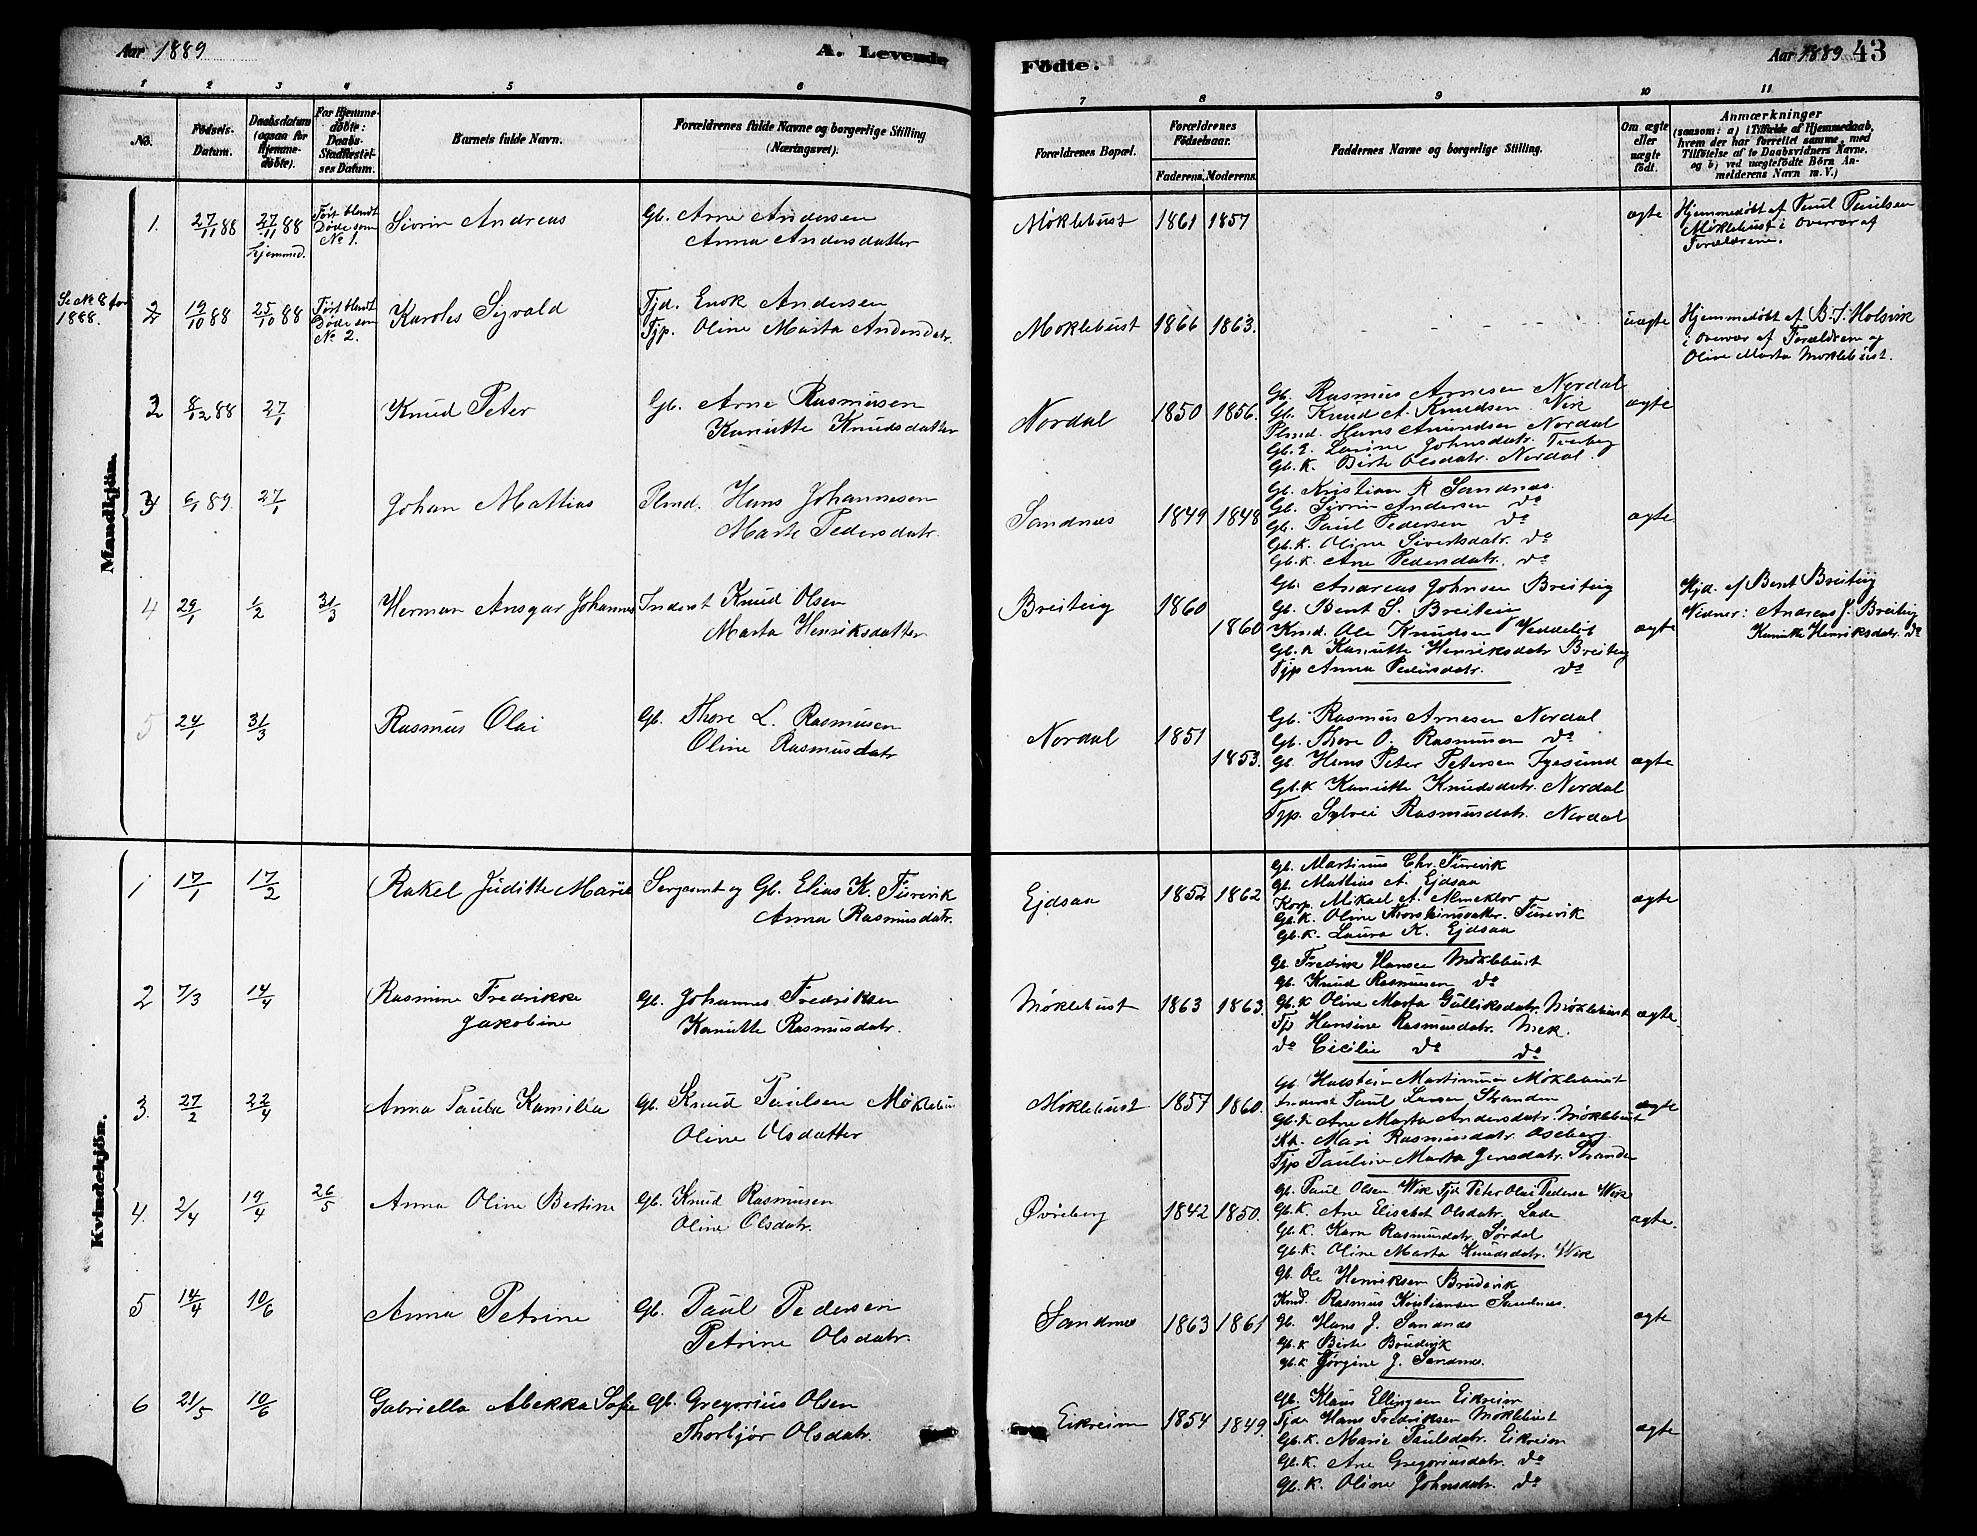 Aar 1889 A. Levende
Födte. Aar 1889 43
1 2 3 4 5 6
7 8 9 10 11
No.
Födsels-
Datum.
Daabsdatum
(ogsaa for
Hjemme-
döbte).
For Hjemme-
döbte:
Daabs-
Stadfæstel-
ses Datum.
Barnets fulde Navn.
Forældrenes fulde Navne og borgerlige Stilling
(Næringsvei).
Forældrenes Bopæl.
Forældrenes
Födselsaar.
Faderens. Moderens.
Faddernes Navne og borgerlige Stilling.
Om ægte
eller
uægte
födt.
Anmærkninger
(saasom: a) i Tilfælde af Hjemmedaab,
hvem der har forrettet samme, med
Tilföielse af to Daabsvidners Navne,
og b) ved uægtefödte Börn An-
melderens Navn m. V.)
Mandkjön.
1. 27/11 88 27/11 88
Hjemmed.
Först blandt
Döde som
No 1.
Sivrin Andreas
Gb. Arne Andersen
Anna Andersdatter
Møklebust 1861 1857
ægte
Hjemmedöbt af Paul Paulsen
Møklebust i Overvær af
Forældrene.
Se No 8 for
1888.
2 19/10 88 25/10 88
Först blandt
Döde som
No 2.
Karoles Sigvald
Tjd. Enok Andersen
Tjp. Oline Marta Andersdatr.
Moklebust 1866 1863.
uægte
Hjemmedöbt af B. J. Holsvik
i Overvær af Forældrene og
Oline Marta Moklebust.
2 8/12 88 27/1
Knud Peter
Gb. Arne Rasmusen
Kanutte Knudsdatter
Nordal 1850 1856.
Gb. Rasmus Arnesen Nordal
Gb. Knud A. Knudsen Vik
Plmd. Hans Amundsen Nordal
Gb.E. Larine Johnsdatr. Tverberg
Gb.K. Birte Olsdatr. Nordal.
ægte
3 6/1 89 27/1
Johan Mattias
Plmd. Hans Johannesen
Marte Pedersdatr.
Sandnæs 1849 1848
Gb. Kristian R Sandnæs.
Gb. Sivrin Andersen do
Gb. Paul Pedersen do
Gb.K. Oline Sivertsdatr. do
Gb.K Ane Pedersdatr. do
ægte
4 29/1 1/2 31/3
Herman Ansgar Johannes
Inderst Knud Olsen
Marta Henriksdatter
Breiteig 1860 1860
Gb. Andreas Johnsen Breiteig
Gb. Bent S. Breitein
Kmd. Ole Knudsen Veddeløt
Gb.K Kanutte Henriksdatr Breiteig
Tjp Anna Pedersdatr. do
ægte
Hjd. af Bent Breiteig
Vidner: Andreas J. Breiteig
Kanutte Henriksdatr. do
5 24/1 31/3
Rasmus Olai
Gb. Thore L. Rasmusen
Oline Rasmusdatr
Nordal 1851 1853.
Gb. Rasmus Arnesen Nordal
Gb. Thore O. Rasmusen do
Gb. Hans Peter Petersen Igesund
Gb.K Kanutte Knudsdatr. Nordal
Tjp. Sylvei Rasmusdatr. Nordal
ægte
Kvindekjön.
1 17/1 17/2
Rakel Juditte Marie
Sergeant og Gb. Elias K. Furevik
Anna Rasmusdatr.
Ejdsaa 1852 1862
Gb. Martinus Chr. Furevik
Gb. Mattias A. Ejdsaa
Korp. Mikael A. Almeklov
Gb.K. Oline Thorsteinsdatter. Furevik
Gb.K. Laura K. Ejdsaa
ægte
2 7/3 14/4
Rasmine Fredrikke
Jakobine
Gb. Johannes Fredriksen
Kanutte Rasmusdatr.
Møklebust 1863 1863.
Gb. Fredrik Hansen Møklebust
Gb. Knud Rasmusen do
Gb.K Oline Marta Gulliksdatr. Møklebust
Tjp Hansine Rasmusdatr. Mek.
do Cecilie do do
ægte.
3. 27/2 22/4
Anna Paula Kamilla
Gb. Knud Paulsen Møklebu
Oline Olsdatter
Møklebust 1857 1860.
Gb. Halstein Martinusen Møklebust
Inderst Paul Larsen Stranden
Gb.K Ane Marta Andersdatr. Møklebust
Kk. Mari Rasmusdatr. Aseberg
Tjp Pauline Marta Jensdatr. Stranden
ægte
4. 2/4 19/4 26/5
Anna Oline Bertine
Gb. Knud Rasmusen
Oline Olsdatr.
Øvreberg 1842 1850.
Gb. Paul Olsen Wik Tjd Peter Olai Pedersen Wik
Gb.K. Ane Elisabet Olsdatr. Lade
Gb.K. Karn Rasmusdatr. Sørdal
Gb.K. Oline Marta Knudsdatr. Wik
ægte.
5 14/4 10/6
Anna Petrine
Gb. Paul Pedersen
Petrine Olsdatr.
Sandnæs 1863 1861
Gb. Ole Henriksen Brudevik
Kmd. Rasmus Kristiansen Sandnæs.
Gb. Hans J. Sandnæs
Gb.K Birte Brudevik
Gb.K Jörgine J. Sandnæs.
ægte
6 21/5 10/6
Gabriella Abekka Sofie
Gb. Gregorius Olsen
Thorbjør Olsdatr.
Eikreim 1854 1849.
Gb. Klaus Ellingsen Eikreim
Tjd. Hans Fredriksen Møklebust
Gb.K. Marie Paulsdatr. Eikreim
Gb.K. Ane Gregoriusdatr. do
Gb.K. Oline Johnsdatr. do
ægte